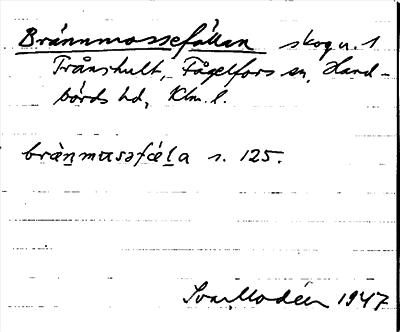 Brännmossefällan skog u. 1
Trånshult, Fågelfors sn, Hand-
börds hd, Klm. l.
bràn̲mɷsəfǽl̲a s. 125.
Ivar Modéer 1947